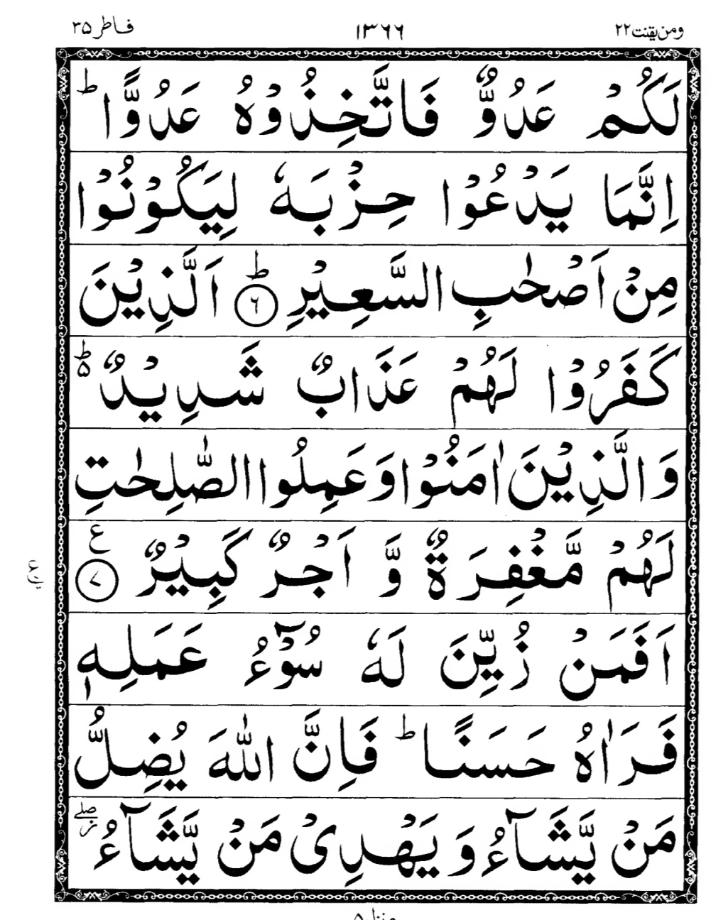 ومن یقنت ۲۲ ۱۳۶۶ فاطر ۳۵
لَكُمْ عَدُوٌّ فَاتَّخِذُوْهُ عَدُوًّا ؕ
اِنَّمَا يَدْعُوْا حِزْبَهٗ لِيَكُوْنُوْا
مِنْ اَصْحٰبِ السَّعِيْرِ ؕ ۶ اَلَّذِيْنَ
كَفَرُوْا لَهُمْ عَذَابٌ شَدِيْدٌ ۬ؕ
وَالَّذِيْنَ اٰمَنُوْا وَعَمِلُوا الصّٰلِحٰتِ
لَهُمْ مَّغْفِرَةٌ وَّ اَجْرٌ كَبِيْرٌ ع ۷
اَفَمَنْ زُيِّنَ لَهٗ سُوْٓءُ عَمَلِهٖ
فَرَاٰهُ حَسَنًا ؕ فَاِنَّ اللّٰهَ يُضِلُّ
مَنْ يَّشَآءُ وَيَهْدِىْ مَنْ يَّشَآءُ ۖز
منزل ۵